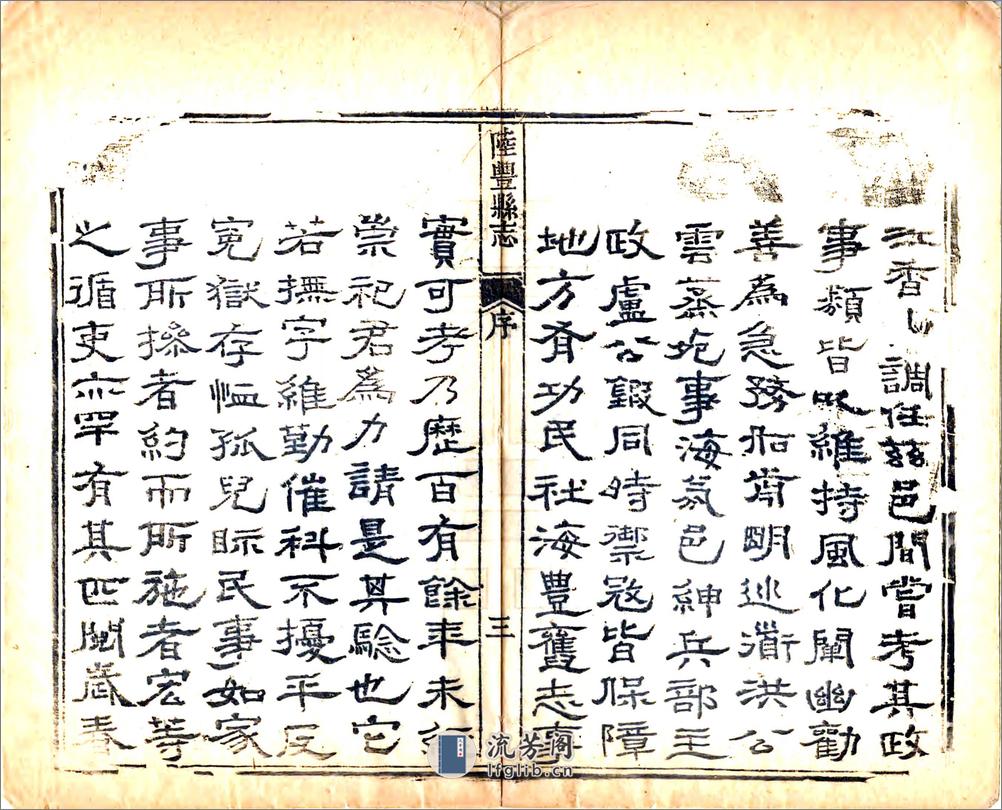 江香山調任兹邑間嘗考其政
事類皆以維持風化闡幽勸
善為急務如前明巡道洪公
雲蒸死事海氛邑紳兵部主
政盧公毅同時禦寇皆保障
地方有功民社海豐舊志事
陸豐縣志
序
三
實可考乃歷百有餘年未
崇祀君為力請是其驗也它
若撫字維勤催科不擾平反
冤獄存恤孤兒眎民事如家
事所摻者約而所施者宏等
之循吏亦罕有其匹閱歲春
流芳阁
lfglib.cn